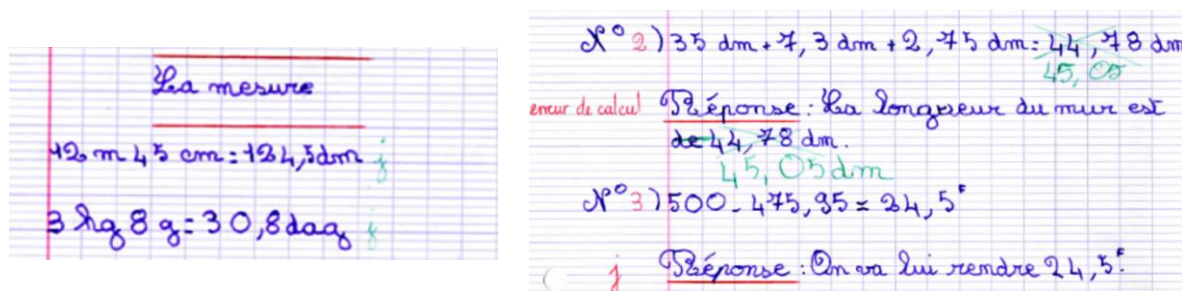 La mesure
12 m 45 cm = 124,5dm j
3 hg 8 g = 30,8dag j
N° 2) 35 dm + 7,3 dm + 2,75 dm = 44,78 dm
45,05
erreur de calcul Réponse : La longueur du mur est
de 44,78 dm.
45,05 dm
N° 3) 500 - 475,95 = 24,5 F
j Réponse : On va lui rendre 24,5 F.